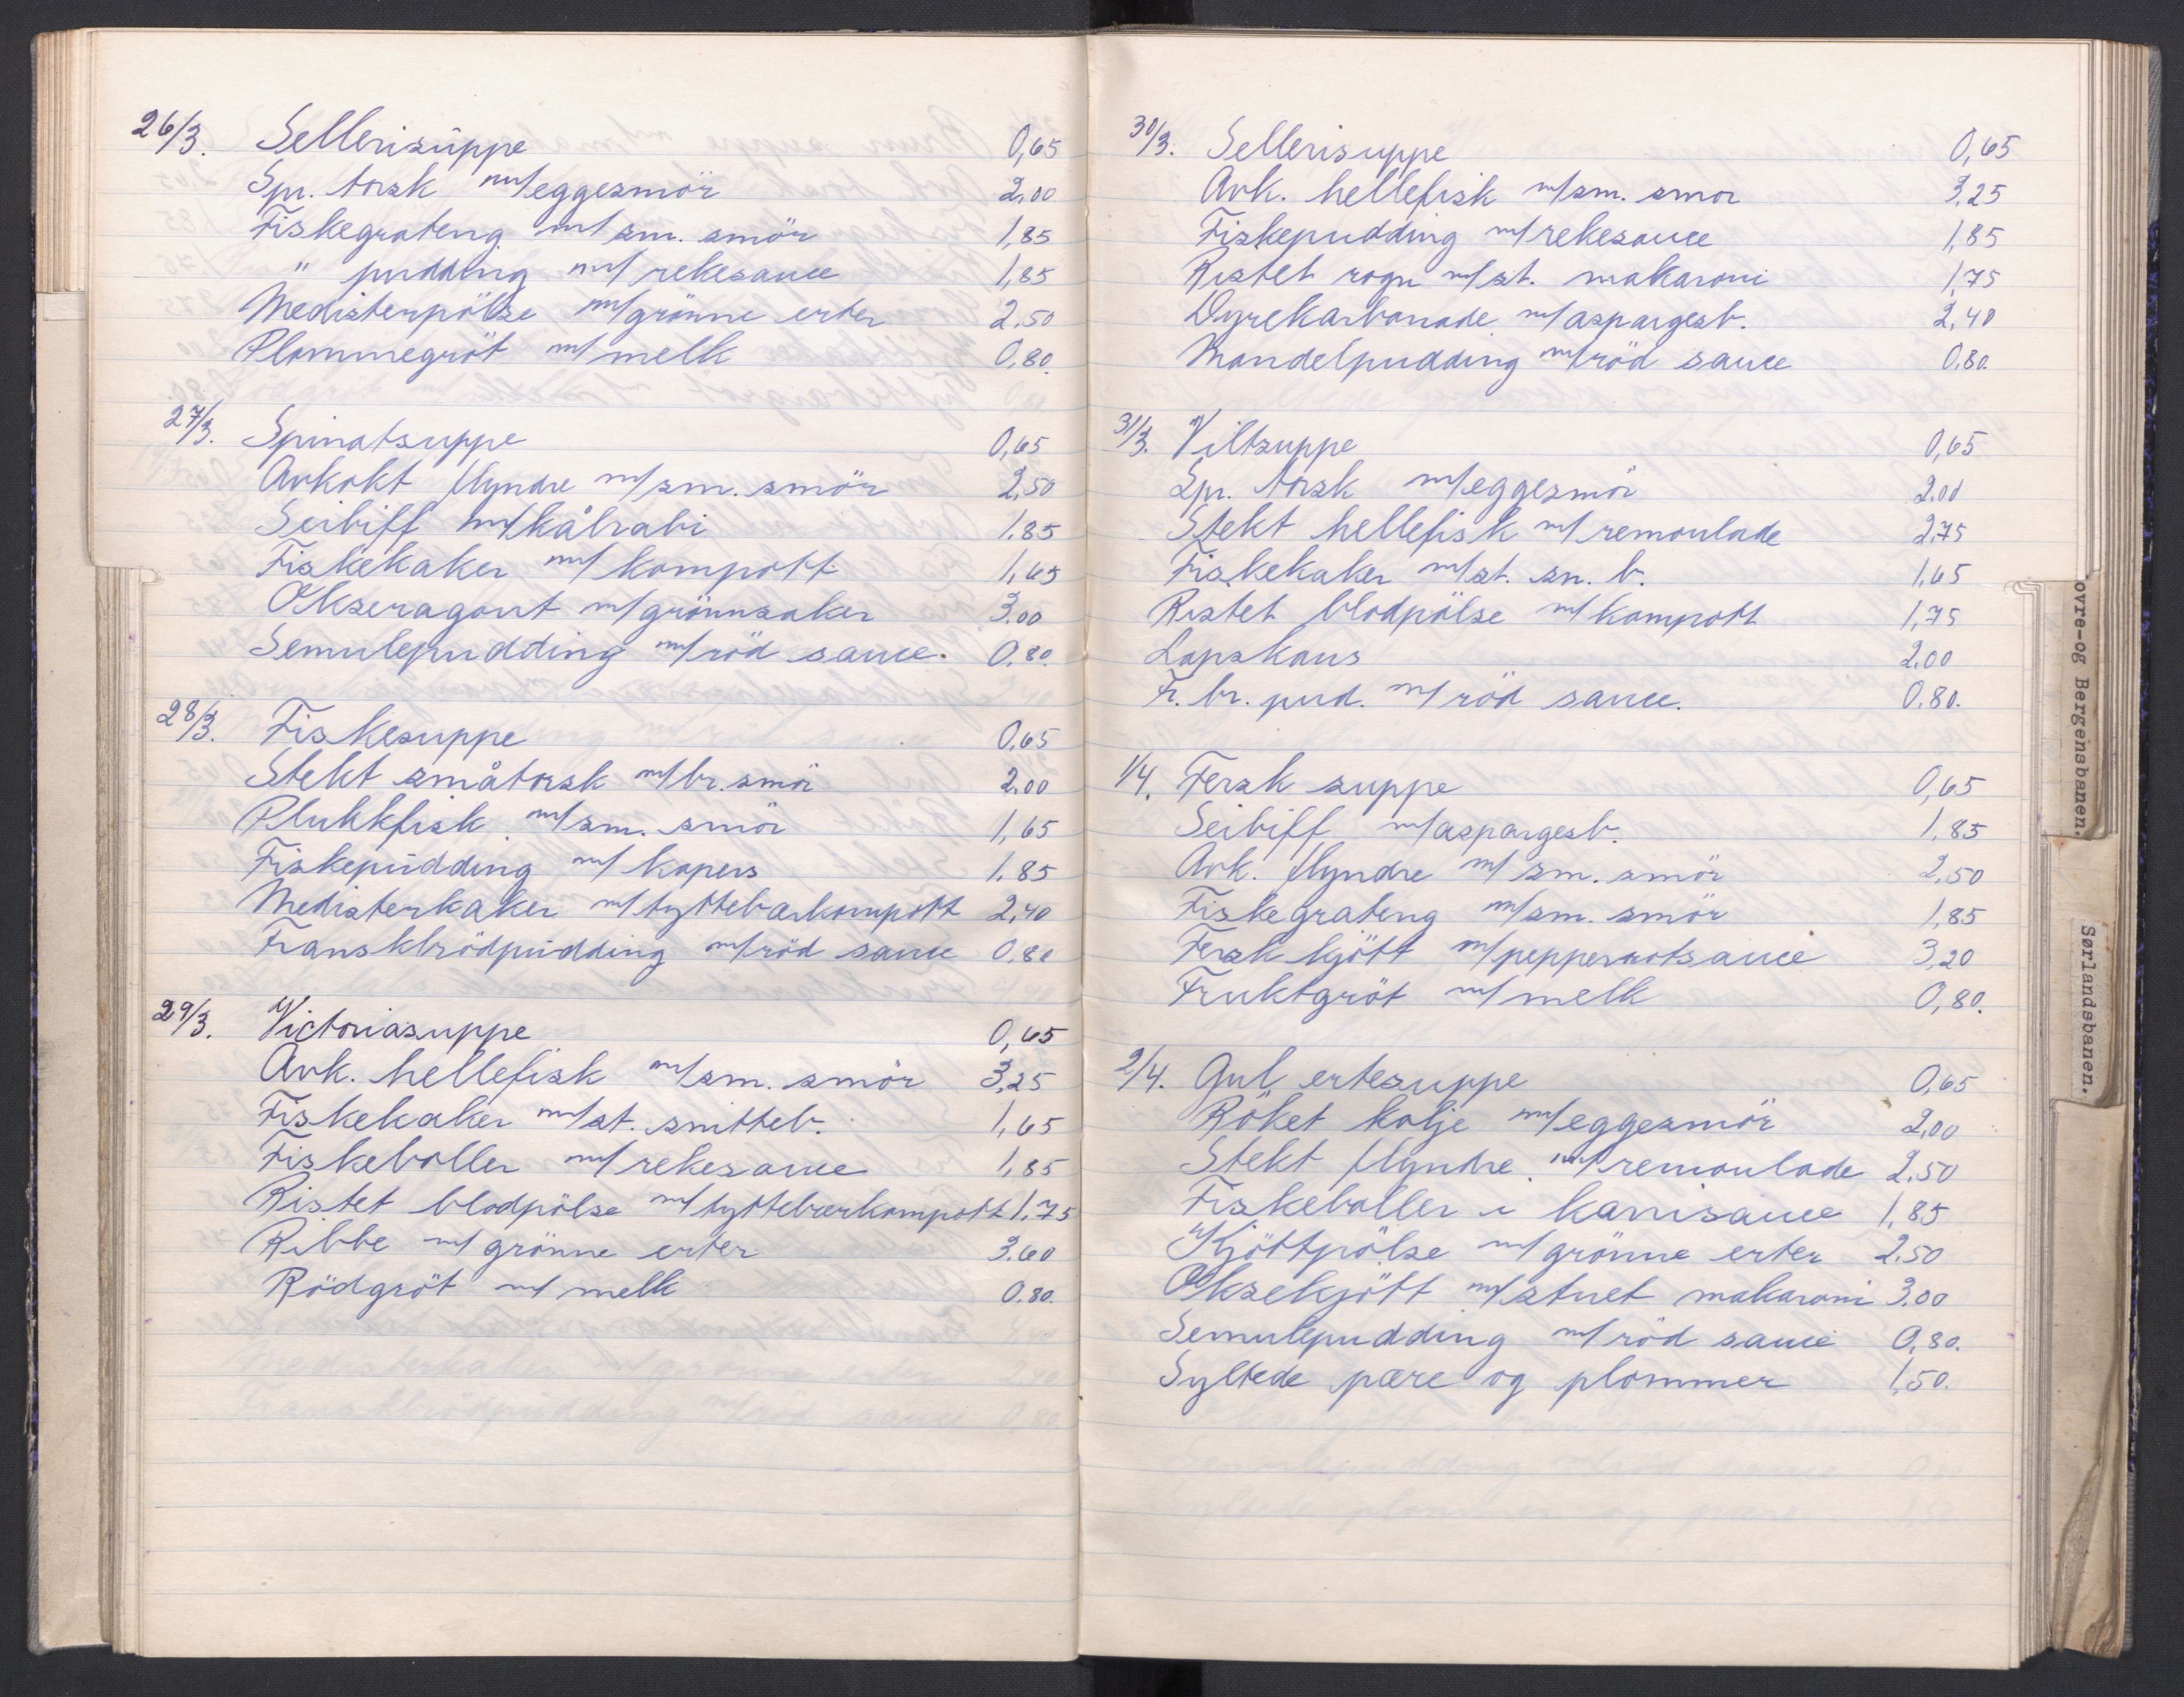 26/3. Sellerisuppe 0,65
Spr. torsk m/eggesmör 2,00
Fiskegrateng m/ sm. smör 1,85
" pudding m/ rekesauce 1,85
Medisterpölse m/grönne erter 2.50
Plommegröt m/ melk 0,80.
27/3. Spinatsuppe 0,65
Avkokt flyndre m/sm. smör 2,50
Seibiff m/kålrabi 1.85
Fiskekaker m/ kompott 1,65
Okseragout m/grönnsaker 3.00
Semulepudding m/röd sauce. 0,80.
28/3. Fiskesuppe 0,65
Stekt småtorsk m/br. smör 2.00
Plukkfisk m/sm. smör 1,65
Fiskepudding m/ kapers 1.85
Medisterkaker m/tyttebærkompott 2,40
Franskbrödpudding m/röd sauce 0,80
29/3. Victoriasuppe 0,65
Avk. hellefisk m/sm. smör 3,25
Fiskekaker m/st. snitteb. 1,65
Fiskeboller m/rekesauce 1,85
Ristet blodpölse m/tyttebærkompott 1.75
Ribbe m/ grönne erter 3.60
Rödgröt m/ melk 0.80.
30/3. Sellerisuppe 0,65
Avk. hellefisk m/sm. smor 3,25
Fiskepudding m/rekesauce 1,85
Ristet rogn m/st. makaroni 1,75
Dyrekarbonade m/aspargesb. 2,40
Mandelpudding m/röd sauce 0.80.
31/3. Viltsuppe 0,65
Spr. torsk m/eggesmör 2.00
Stekt hellefisk m/ remoulade 2,75
Fiskekaker m/st. sn. b. 1.65
Ristet blodpölse m/ kompott 1,75
Lapskaus 2.00
Fr. br. pud. m/ röd sauce. 0.80.
1/4. Fersk suppe 0,65
Seibiff m/aspargesb. 1,85
Avk. flyndre m/ sm. smör 2,50
Fiskegrateng m/sm. smör 1,85
Fersk kjött m/pepperrotsauce 3,20
Fruktgröt m/ melk 0,80.
2/4. Gul ertesuppe 0,65
Röket kolje m/eggesmör 2,00
Stekt flyndre m/remoulade 2.50
Fiskeboller i karrisauce 1,85
Kjöttpölse m/ grönne erter 2.50
Oksekjött m/stuet makaroni 3.00
Semulepudding m/röd sauce 0,80.
Syltede pære og plommer 1,50.
ovre-og Bergensbanen.
Sørlandsbanen.